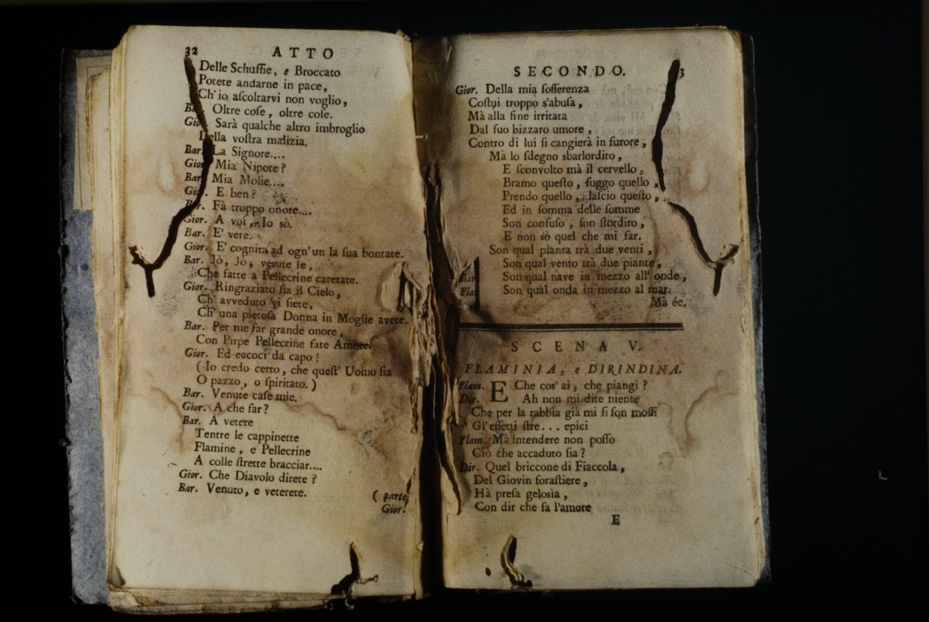 32 ATTO
Delle Schuffie, e Broccato
Potete andarne in pace,
Ch'io ascoltarvi non voglio,
Bar. Oltre cose, oltre cose.
Gior. Sarà qualche altro imbroglio
Della vostra malizia.
Bar. La Signore....
Gior. Mia Nipote?
Bar. Mia Molie....
Gior. E ben?
Bar. Fà troppo onore....
Gior. A voi, Io sò.
Bar. E' vere.
Gior. E' cognita ad ogn'un la sua bontate.
Bar. Jò, Jò, venute le,
Che fatte a Pellecrine caretate.
Gior. Ringraziato sia il Cielo,
Ch' avveduto vi siete,
Ch' una pietosa Donna in Moglie avete.
Bar. Per me far grande onore,
Con l'irpe Pellecrine fate Amore.
Gior. Ed eccoci da capo!
( Io credo certo, che quest' Uomo sia
O pazzo, o spiritato. )
Bar. Venute case mie.
Gior. A che far?
Bar. A vetere
Tentre le cappinette
Flamine, e Pellecrine
A colle strette bracciar....
Gior. Che Diavolo direte?
Bar. Venuto, e veterete.
( parte
Gior.
SECONDO. 3
Gior. Della mia sofferenza
Costui troppo s'abusa,
Mà alla fine irritata
Dal suo bizzaro umore,
Contro di lui si cangierà in furore,
Mà lo sdegno sbarlordito,
E sconvolto mà il cervello,
Bramo questo, fuggo quello,
Prendo quello, lascio questo,
Ed in somma delle somme
Son confuso, son stordito,
E non sò quel che mi far.
Son qual pianta trà due venti,
Son qual vento trà due piante,
Bar. Son qual nave in mezzo all' onde,
Fla. Son qual onda in mezzo al mar.
Mà éc.
SCENA V.
FLAMINIA, e DIRINDINA.
Flam. E Che cos' ai, che piangi?
Dir. Ah non mi dite niente
Che per la rabbia già mi si son mossi
Gl'effetti stre... epici
Flam. Mà intendere non posso
Ciò che accaduto sia?
Dir. Quel briccone di Fiaccola,
Del Giovin forastiere,
Hà presa gelosia,
Con dir che fa l'amore
E